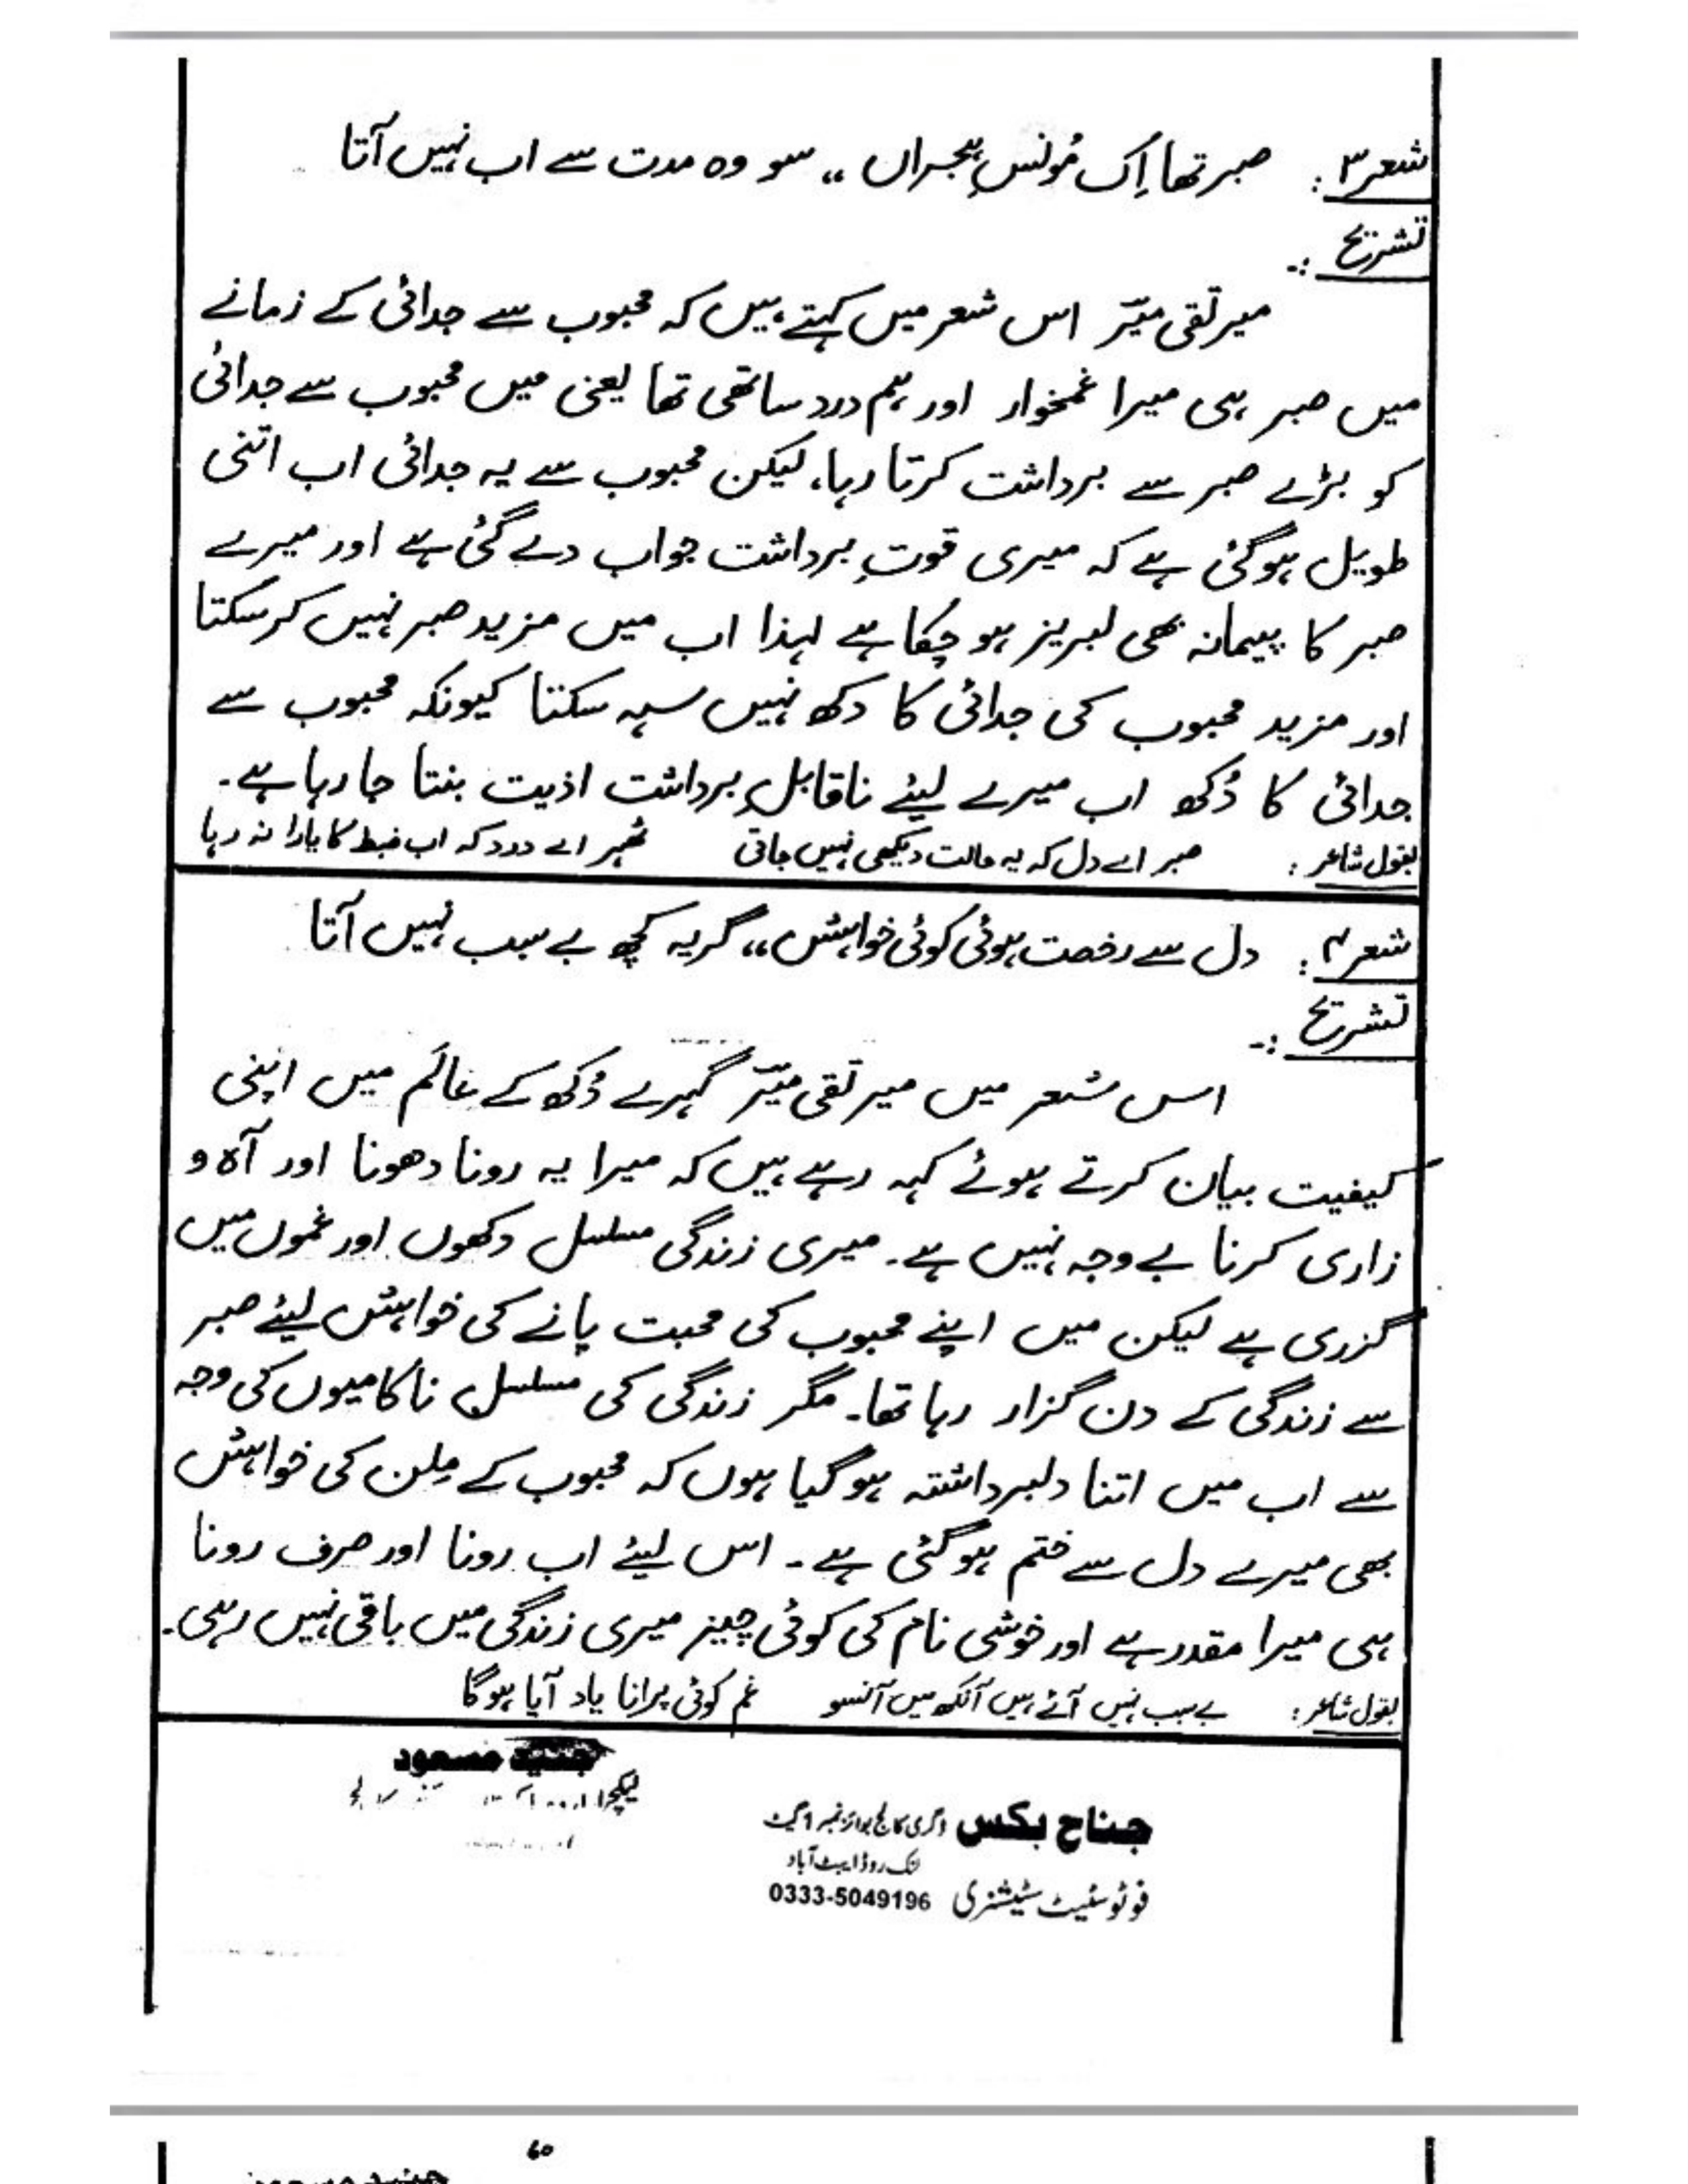 شعر ۳: صبر تھا اِک مُونسِ ہجراں ،، سو وہ مدت سے اب نہیں آتا
تشریح :۔
میر تقی میرؔ اس شعر میں کہتے ہیں کہ محبوب سے جدائی کے زمانے
میں صبر ہی میرا غمخوار اور ہم درد ساتھی تھا یعنی میں محبوب سے جدائی
کو بڑے صبر سے برداشت کرتا رہا، لیکن محبوب سے یہ جدائی اب اتنی
طویل ہوگئی ہے کہ میری قوتِ برداشت جواب دے گئی ہے اور میرے
صبر کا پیمانہ بھی لبریز ہو چکا ہے لہذا اب میں مزید صبر نہیں کرسکتا
اور مزید محبوب کی جدائی کا دکھ نہیں سہہ سکتا کیونکہ محبوب سے
جدائی کا دُکھ اب میرے لیئے ناقابلِ برداشت اذیت بنتا جا رہا ہے۔
بقول شاعر : صبر اے دل کہ یہ حالت دیکھی نہیں جاتی ٹھہر اے درد کہ اب ضبط کا یارا نہ رہا
شعر ۴: دل سے رخصت ہوئی کوئی خواہش ،، گریہ کچھ بے سبب نہیں آتا
تشریح :۔
اس شعر میں میر تقی میرؔ گہرے دُکھ کے عالَم میں اپنی
کیفیت بیان کرتے ہوئے کہہ رہے ہیں کہ میرا یہ رونا دھونا اور آہ و
زاری کرنا بے وجہ نہیں ہے۔ میری زندگی مسلسل دکھوں اور غموں میں
گزری ہے لیکن میں اپنے محبوب کی محبت پانے کی خواہش لیئے صبر
سے زندگی کے دن گزار رہا تھا۔ مگر زندگی کی مسلسل ناکامیوں کی وجہ
سے اب میں اتنا دلبرداشتہ ہوگیا ہوں کہ محبوب کے مِلن کی خواہش
بھی میرے دل سے ختم ہوگئی ہے۔ اس لیئے اب رونا اور صرف رونا
ہی میرا مقدر ہے اور خوشی نام کی کوئی چیز میری زندگی میں باقی نہیں رہی۔
بقول شاعر : بے سبب نہیں آئے ہیں آنکھ میں آنسو غم کوئی پرانا یاد آیا ہوگا
جنید مسعود
لیکچرار
جناح بکس ڈگری کالج بوائز نمبر 1 گیٹ
لنک روڈ ایبٹ آباد
فوٹو سٹیٹ سٹیشنری 0333-5049196
60
جنید مسعود